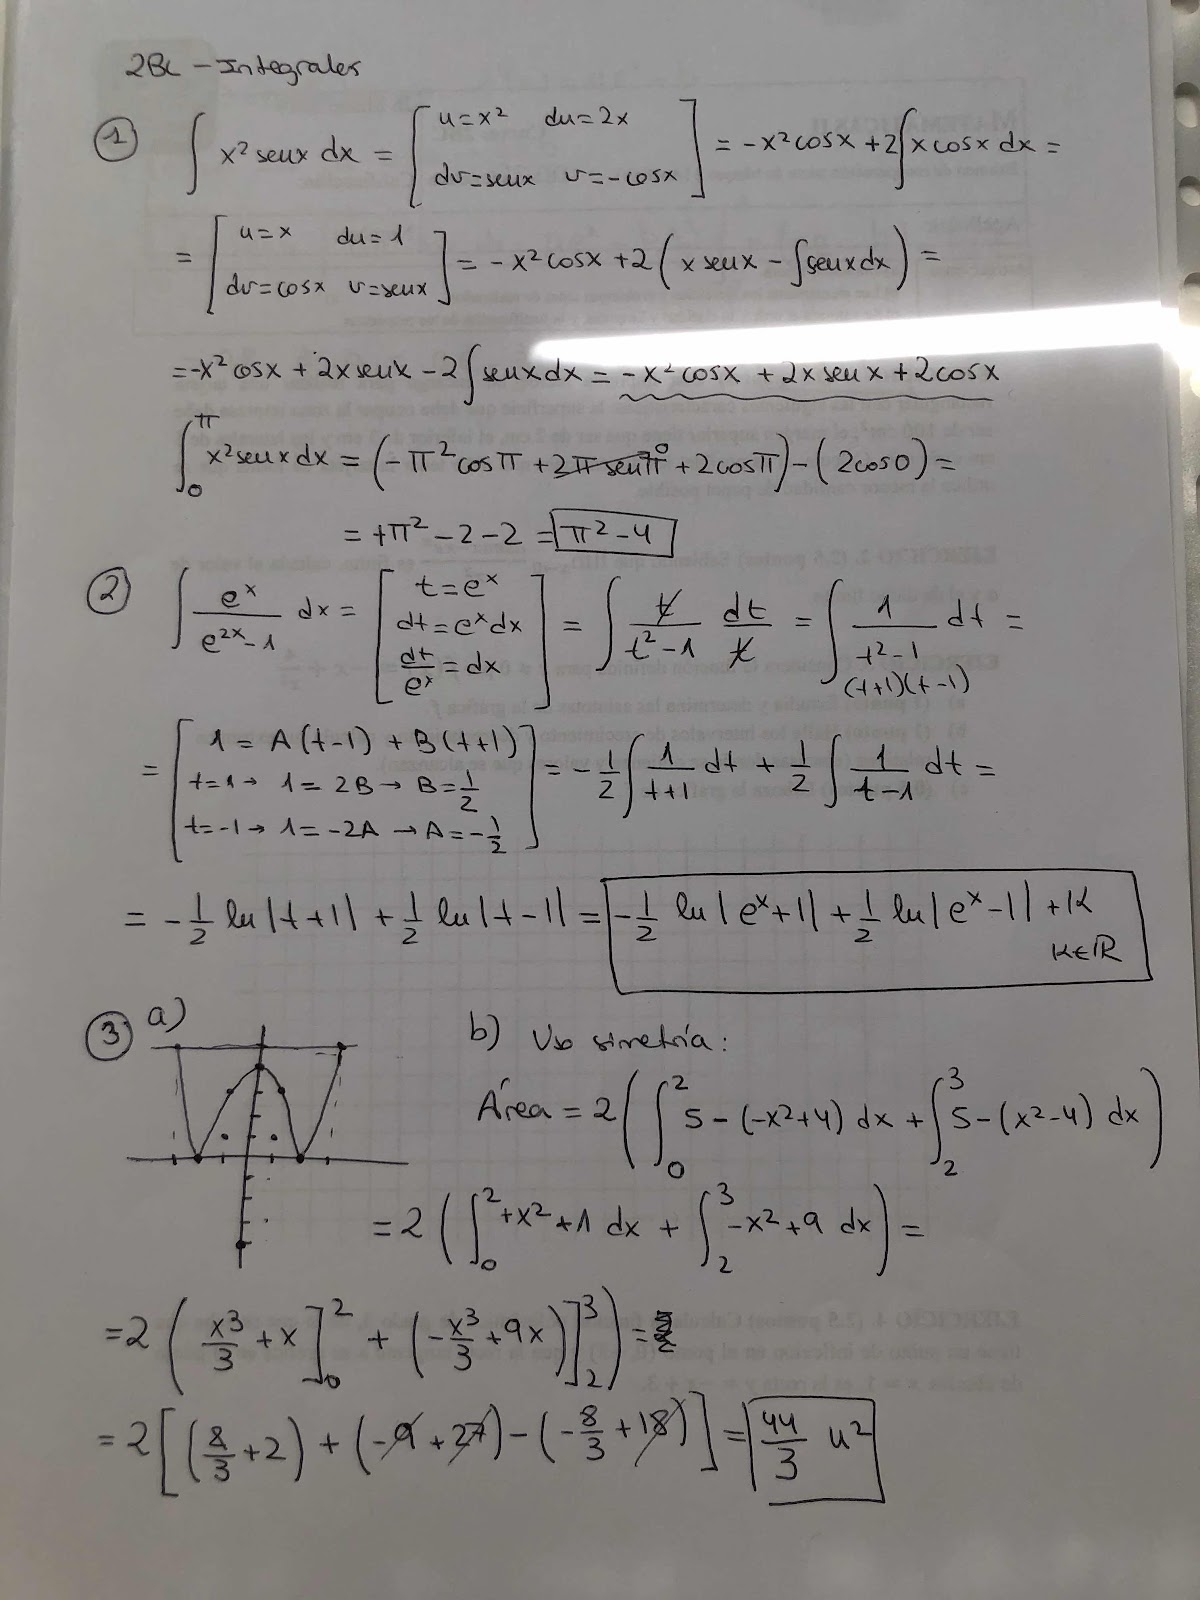 2BC - Integrales
① ∫ x² senx dx = [ u = x² du = 2x dv = senx v = -cosx ] = -x² cosx + 2∫ x cosx dx =
= [ u = x du = 1 dv = cosx v = senx ] = -x² cosx + 2 ( x senx - ∫ senx dx ) =
= -x² cosx + 2x senx - 2∫ senx dx = -x² cosx + 2x senx + 2cosx
∫₀^π x² senx dx = (-π² cosπ + 2π senπ⁰ + 2cosπ) - (2cos0) =
= +π² - 2 - 2 = π² - 4
② ∫ eˣ/(e²ˣ - 1) dx = [ t = eˣ dt = eˣdx dt/eˣ = dx ] = ∫ t/(t² - 1) dt/t = ∫ 1/(t² - 1) dt =
(t+1)(t-1)
= [ 1 = A(t-1) + B(t+1) t=1 → 1 = 2B → B = 1/2 t=-1 → 1 = -2A → A = -1/2 ] = -1/2 ∫ 1/(t+1) dt + 1/2 ∫ 1/(t-1) dt =
= -1/2 ln|t+1| + 1/2 ln|t-1| = -1/2 ln|eˣ+1| + 1/2 ln|eˣ-1| + K
K∈ℝ
③ a)
b) Uso simetría:
Área = 2 ( ∫₀² 5 - (-x²+4) dx + ∫₂³ 5 - (x²-4) dx )
= 2 ( ∫₀² +x² + 1 dx + ∫₂³ -x² + 9 dx ) =
= 2 ( x³/3 + x ]₀² + (-x³/3 + 9x) ]₂³ ) =
= 2 [ (8/3 + 2) + (-9 + 27) - (-8/3 + 18) ] = 44/3 u²